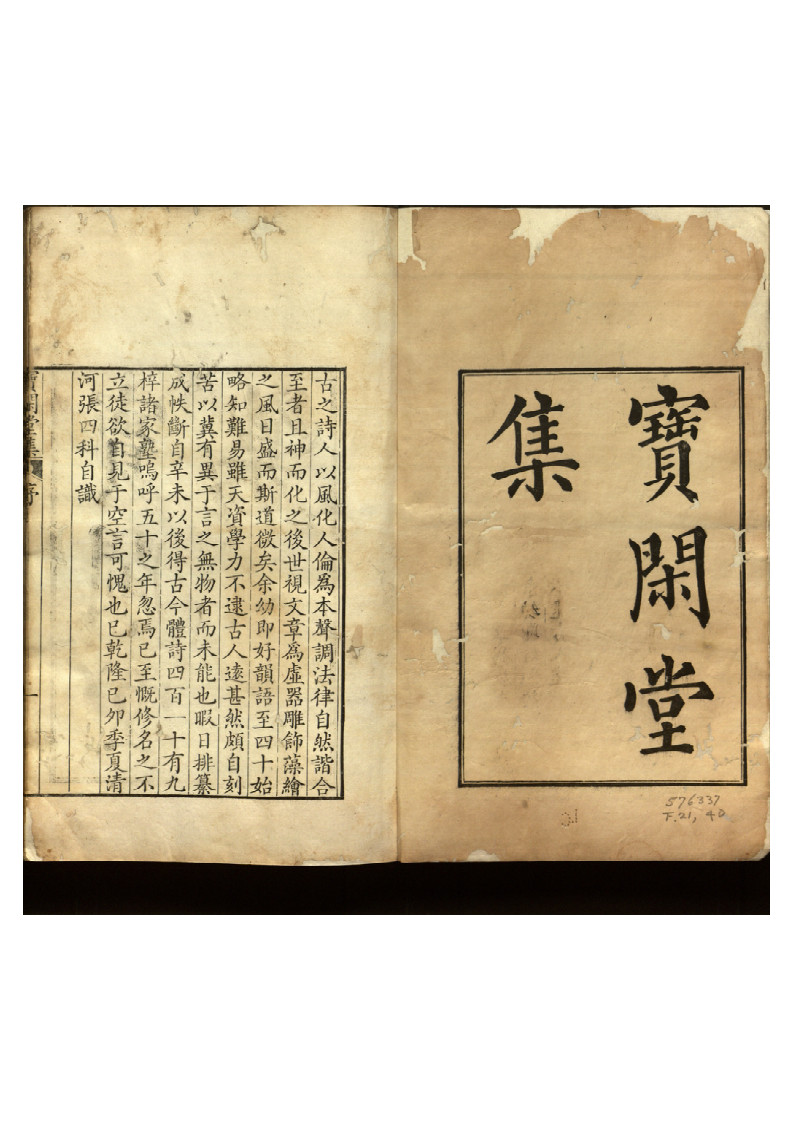 寶閑堂
集
576337
F.21, 40
古之詩人以風化人倫為本聲調法律自然諧合
至者且神而化之後世視文章為虛器雕飾藻繪
之風日盛而斯道微矣余幼即好韻語至四十始
略知難易雖天資學力不逮古人遠甚然頗自刻
苦以冀有異于言之無物者而未能也暇日排纂
成帙斷自辛未以後得古今體詩四百一十有九
梓諸家塾嗚呼五十之年忽焉已至慨修名之不
立徒欲自見于空言可愧也已乾隆己卯季夏清
河張四科自識
寶閑堂集 序 一